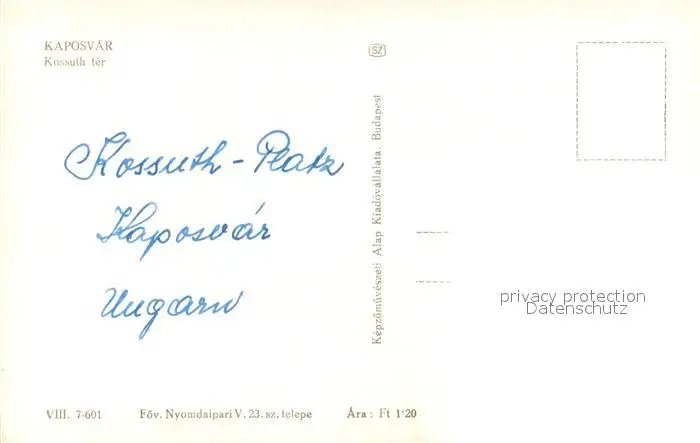 KAPOSVÁR
Kossuth tér
SZ
Kossuth - Platz
Kaposvár
Ungarn
Képzőművészeti Alap Kiadóvállalata, Budapest
privacy protection
Datenschutz
VIII. 7-601 Föv. Nyomdaipari V. 23. sz. telepe Ára: Ft 1·20